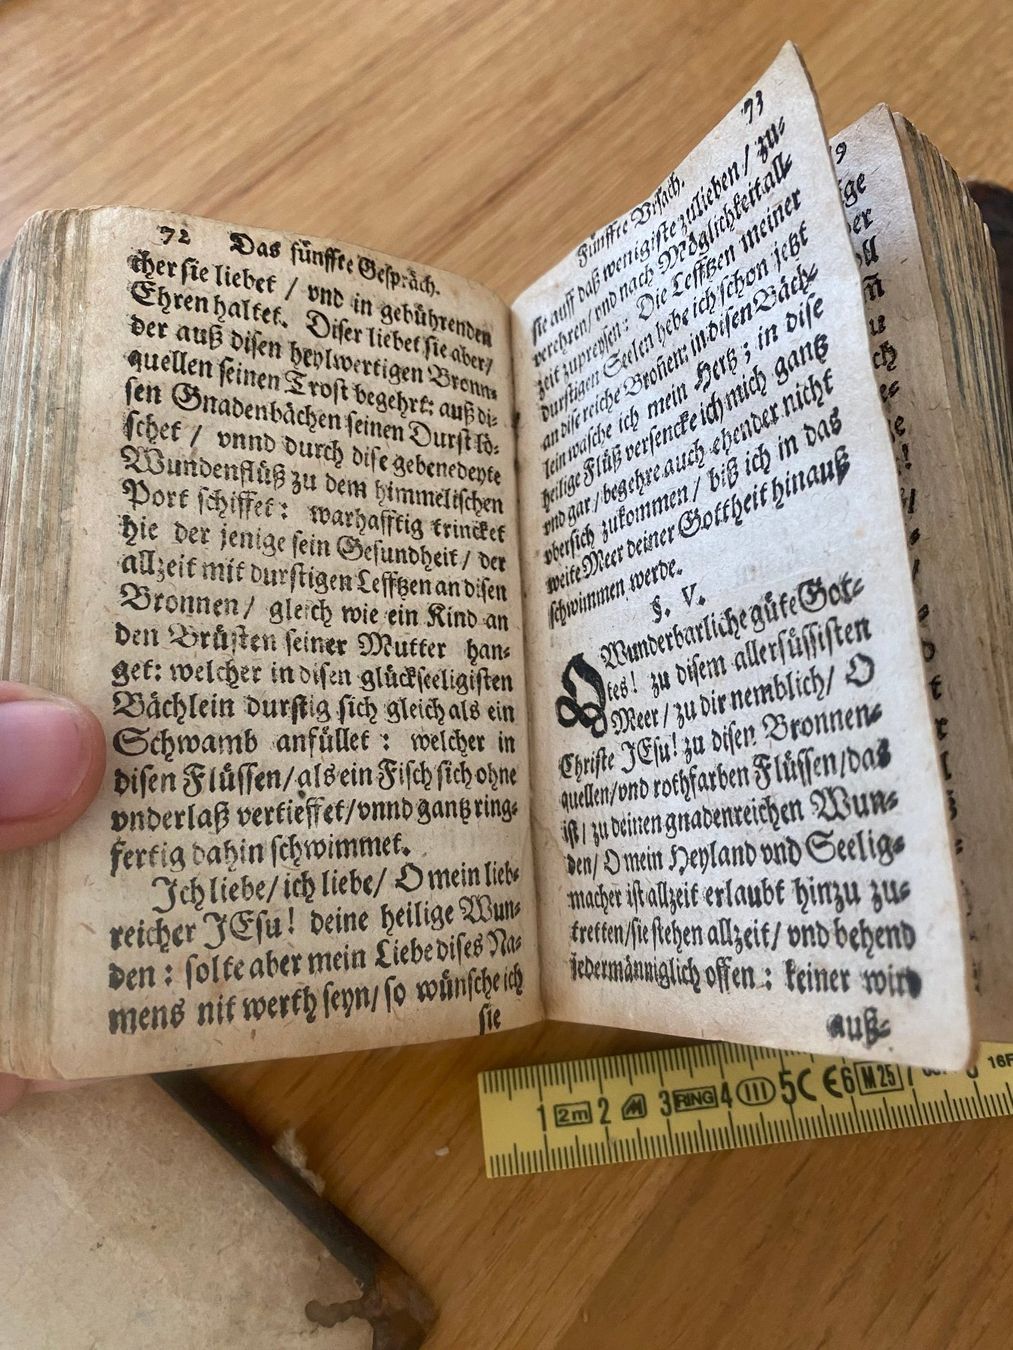 72 Das fünffte Gespräch.
cher sie liebet / vnd in gebührenden
Ehren haltet. Diser liebet sie aber/
der auß disen heylwertigen Bronn⸗
quellen seinen Trost begehrt: auß di⸗
sen Gnadenbächen seinen Durst lö⸗
schet / vnnd durch dise gebenedeyte
Wundenflüß zu dem himmelischen
Port schiffet: warhafftig trincket
hie der jenige sein Gesundheit / der
allzeit mit durstigen Lefftzen an disen
Bronnen / gleich wie ein Kind an
den Brüsten seiner Mutter han⸗
get: welcher in disen glückseeligisten
Bächlein durstig sich gleich als ein
Schwamb anfüllet : welcher in
disen Flüssen/als ein Fisch sich ohne
vnderlaß vertieffet/vnnd gantz ring⸗
fertig dahin schwimmet.
Ich liebe/ ich liebe/ O mein lieb⸗
reicher JEsu! deine heilige Wun⸗
den : solte aber mein Liebe dises Na⸗
mens nit werth seyn/ so wünsche ich
sie
Fünffte Vrsach. 73
sie auff daß wenigiste zulieben / zu⸗
verehren/ vnd nach Möglichkeit all⸗
zeit zupreysen: Die Lefftzen meiner
durstigen Seelen hebe ich schon jetzt
an dise reiche Bronen: in disen Bäch⸗
lein wasche ich mein Hertz; in dise
heilige Flüß versencke ich mich gantz
vnd gar / begehre auch ehender nicht
vbersich zukommen / biß ich in das
weite Meer deiner Gottheit hinauß
schwimmen werde.
§. V.
O Wunderbarliche güte Got⸗
tes! zu disem allersüssisten
Meer / zu dir nemblich/ O
Christe JEsu! zu disen Bronnen⸗
quellen/vnd rothfarben Flüssen/das
ist / zu deinen gnadenreichen Wun⸗
den/ O mein Heyland vnd Seelig⸗
macher ist allzeit erlaubt hinzu zu⸗
tretten/sie stehen allzeit / vnd behend
jedermänniglich offen : keiner wird
auß⸗
1 2m 2 3 RING 4 III 5 CE 6 M 25 7